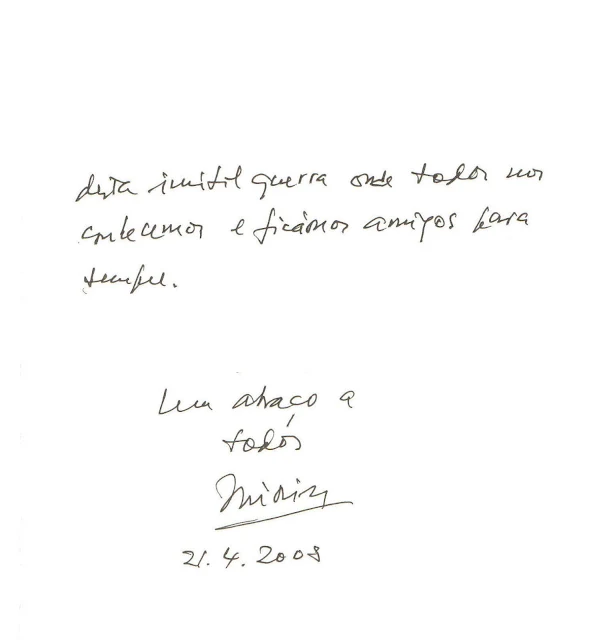 desta inútil guerra onde todos nos
conhecemos e ficámos amigos para
sempre.
Um abraço a
todos
21.4.2008